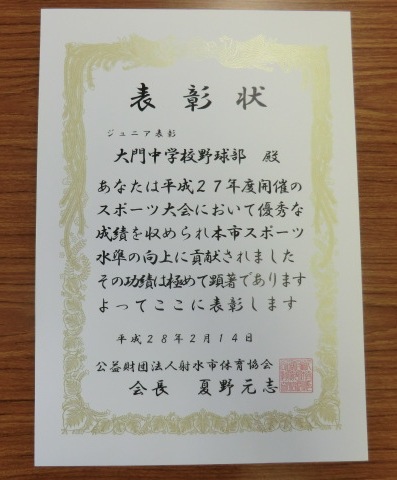 表彰状
ジュニア表彰
大門中学校野球部 殿
あなたは平成27年度開催の
スポーツ大会において優秀な
成績を収められ本市スポーツ
水準の向上に貢献されました
その功績は極めて顕著であります
よってここに表彰します
平成28年2月14日
公益財団法人射水市体育協会
会長 夏野元志